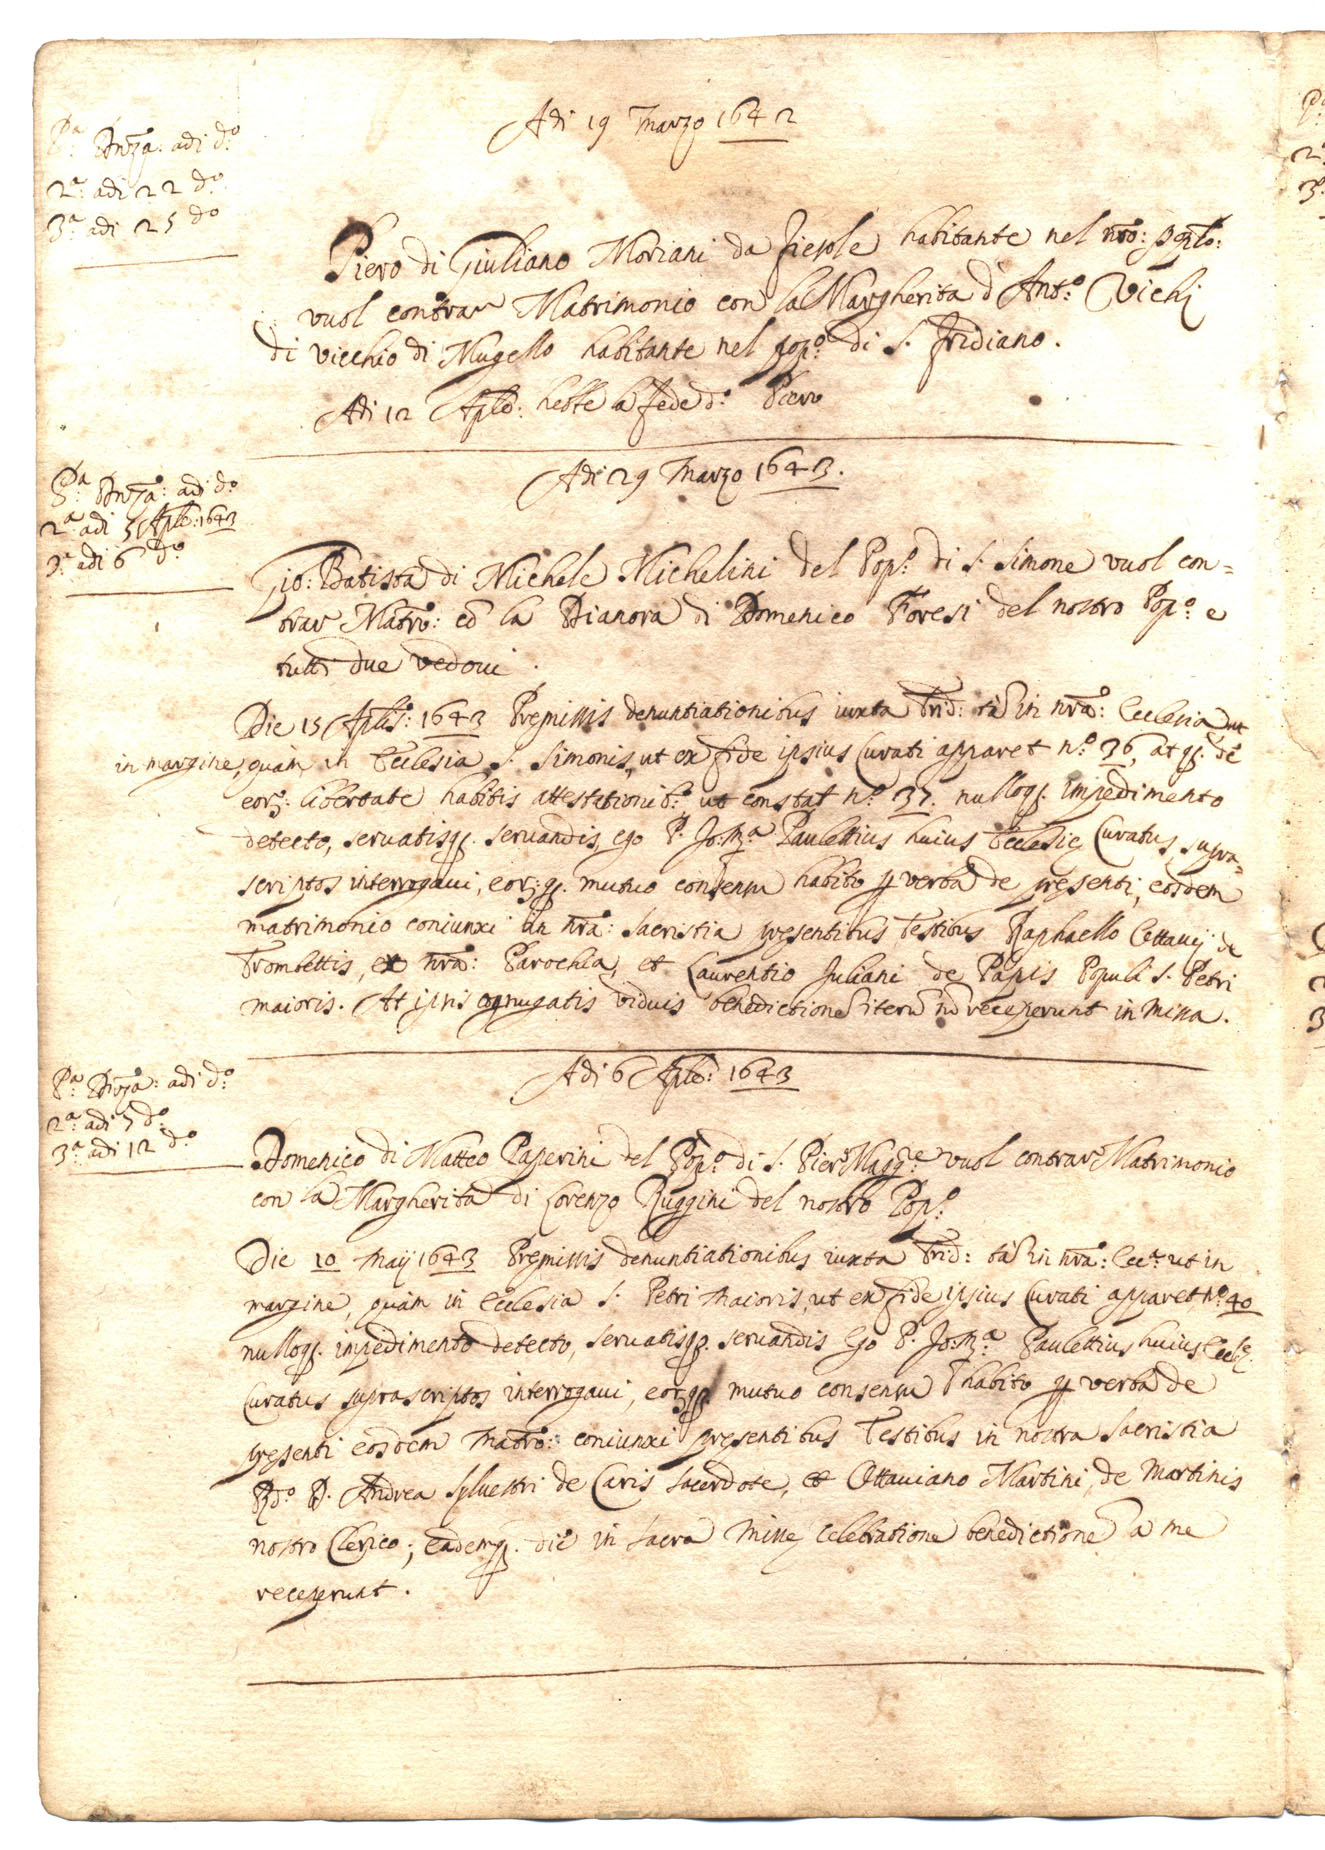 Adi 19 Marzo 1642
Pa: Dnza: adi do:
2a: adi 22 do:
3a: adi 25 do
Piero di Giuliano Moriani da Fiesole habitante nel nro:
vuol contrar Matrimonio con la Margherita d'Anto: Vichi
di Vicchio di Mugello habitante nel popo: di S. Fridiano.
Adi 12 Aple: hebbe la fede do: Piero
Adi 29 Marzo 1643.
Pa: Dnza: adi do:
2a: adi 5 Aple: 1643
3a: adi 6 do:
Gio: Batista di Michele Michelini del Popo: di S. Simone vuol con=
trar Matro: cō la Dianora di Domenico Foresi del nostro Popo: e
tutti due vedovi.
Die 15 Aplis: 1643 Premissis denuntiationibus iuxta Trid: tā in nra: Ecclesia ut
in margine, quàm in Ecclesia S. Simonis, ut ex fide ipsius Curati apparet no: 36, atq. de
eorz: libertate habitis attestationib: ut constat no: 37. nulloq. impedimento
detecto, servatisq. servandis, ego P. Jo: Ma: Paulettius huius Ecclesię Curatus, supra=
scriptos interrogavi, eorz:q. mutuo consensu habito p verba de presenti, eosdem
matrimonio coniunxi in nra: Sacristia presentibus Testibus Raphaello Ottavij de
Trombettis, ex nra: Parochia, et Laurentio Juliani de Papis Populi S. Petri
maioris. At ipsi coniugatis viduis benedictionē iterū nō receperunt in Missa.
Adi 6 Aple: 1643
Pa: Dnza: adi do:
2a: adi 5 do:
3a: adi 12 do:
Domenico di Matteo Paperini del Popo: di S. Pier Maggre: vuol contrar Matrimonio
con la Margherita di Lorenzo Ruggini del nostro Popo:
Die 10 Maij 1643 Premissis denuntiationibus iuxta Trid: tā in nra: Ecca: ut in
margine, quàm in Ecclesia S. Petri Maioris, ut ex fide ipsius Curati apparet no: 40
nulloq. impedimento detecto, servatisq. servandis Ego P. Jo: Ma: Paulettius huius Eccle:
Curatus suprascriptos interrogavi, eorzq. mutuo consensu habito p verba de
presenti eosdem Matro: coniunxi presentibus Testibus in nostra Sacristia
Rdo: D. Andrea Sylvestri de Caris Sacerdote, et Ottaviano Martini de Martinis
nostro Clerico; eademq. die in sacra Missę celebratione benedictionē a me
receperunt.